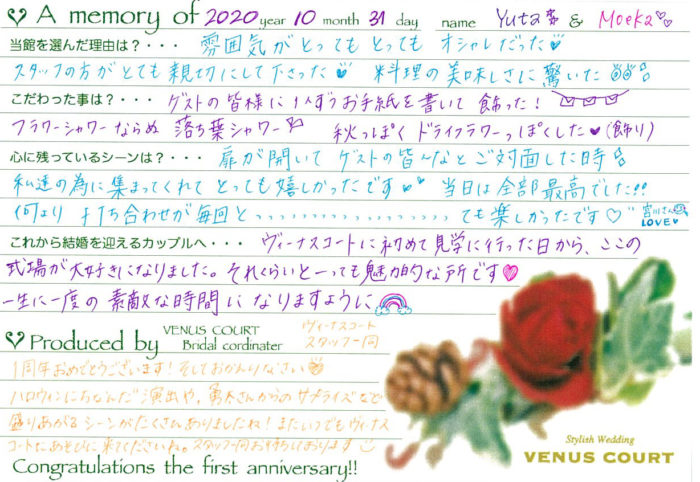 A memory of 2020 year 10 month 31 day name Yuta & Moeka
当館を選んだ理由は？・・・ 雰囲気がとってもとってもオシャレだった
スタッフの方がとても親切にして下さった 料理の美味しさに驚いた
こだわった事は？・・・ ゲストの皆様に1人ずつお手紙を書いて飾った！
フラワーシャワーならぬ落ち葉シャワー 秋っぽくドライフラワーっぽくした♥(飾り)
心に残っているシーンは？・・・ 扉が開いてゲストの皆んなとご対面した時
私達の為に集まってくれてとっても嬉しかったです 当日は全部最高でした!!
何より打ち合わせが毎回とっっっっっっっっっっっっっっっっっっても楽しかったです♡ 宮川さん LOVE♥
これから結婚を迎えるカップルへ・・・ ヴィーナスコートに初めて見学に行った日から、ここの
式場が大好きになりました。それくらいとーっても魅力的な所です♡
一生に一度の素敵な時間になりますように
Produced by VENUS COURT Bridal cordinater ヴィーナスコート スタッフ一同
1周年おめでとうございます！そしておかえりなさい
ハロウィンにちなんだ演出や、新木さんからのサプライズなど
盛りあがるシーンがたくさんありましたね！またいつでもヴィナス
コートにあそびに来てくださいね。スタッフ一同お待ちしております
Congratulations the first anniversary!!
Stylish Wedding
VENUS COURT